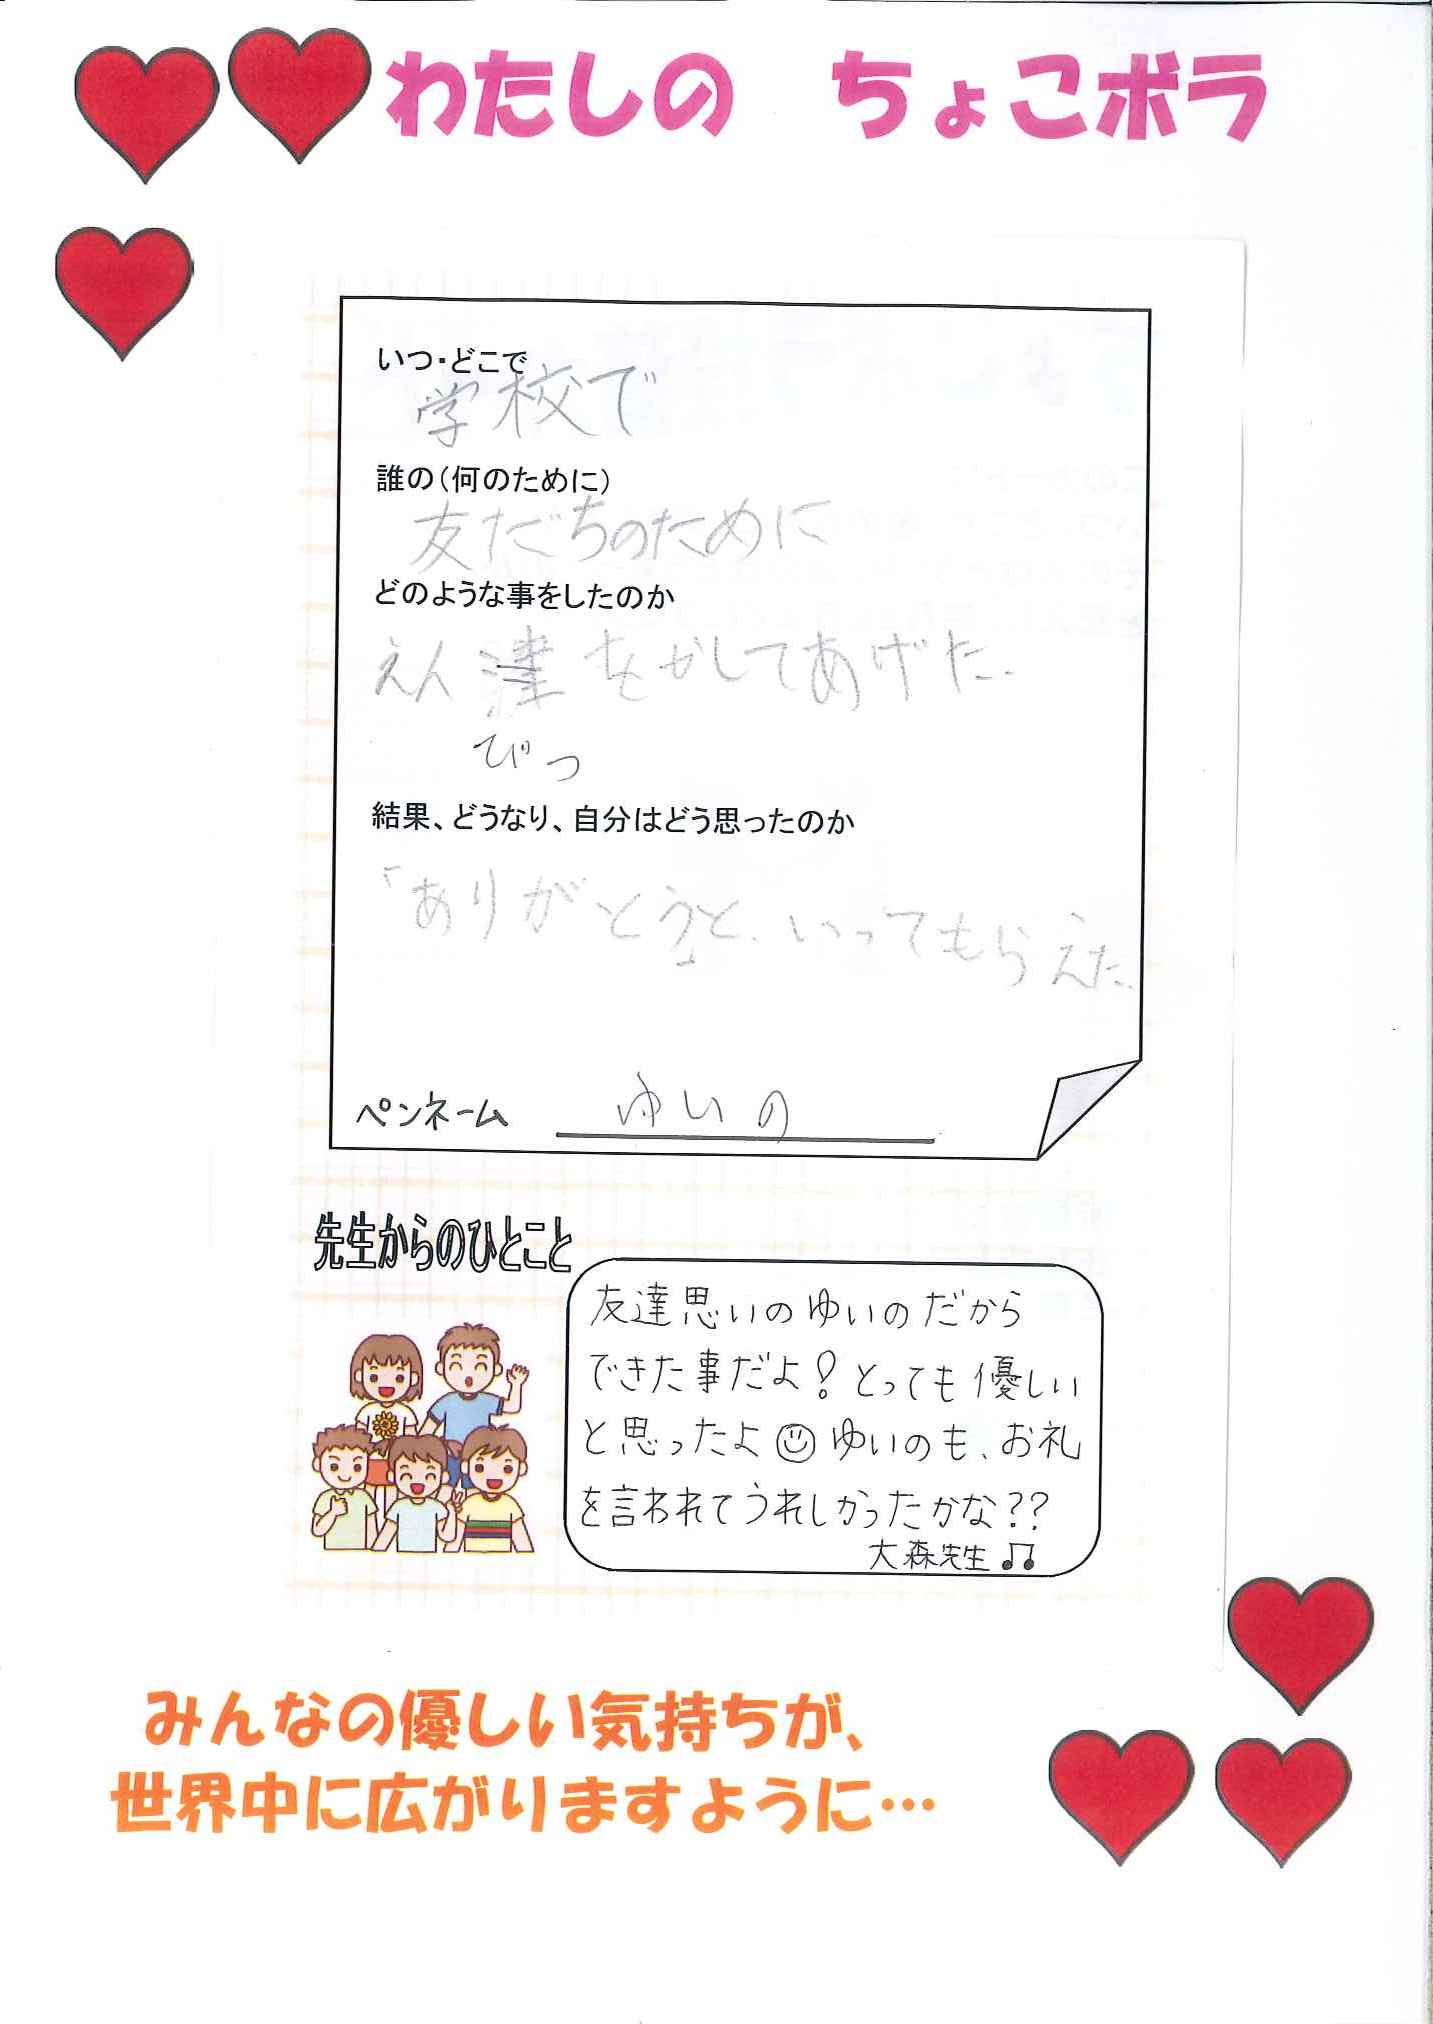 わたしの ちょこボラ
いつ・どこで
学校で
誰の（何のために）
友だちのために
どのような事をしたのか
えん をかしてあげた。
ぴつ
結果、どうなり、自分はどう思ったのか
「ありがとう」と、いってもらえた。
ペンネーム ゆいの
先生からのひとこと
友達思いのゆいのだから
できた事だよ！とっても優しい
と思ったよ☺ゆいのも、お礼
を言われてうれしかったかな？？
大森先生♫
みんなの優しい気持ちが、
世界中に広がりますように…